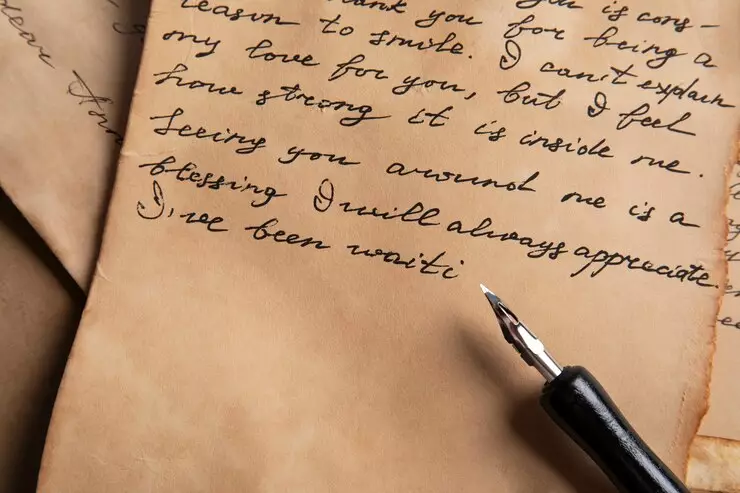 Dear Ann
thank you for being a
reason to smile. I can't explain
my love for you, but I feel
how strong it is inside me.
Seeing you around me is a
blessing I will always appreciate.
I've been waiti